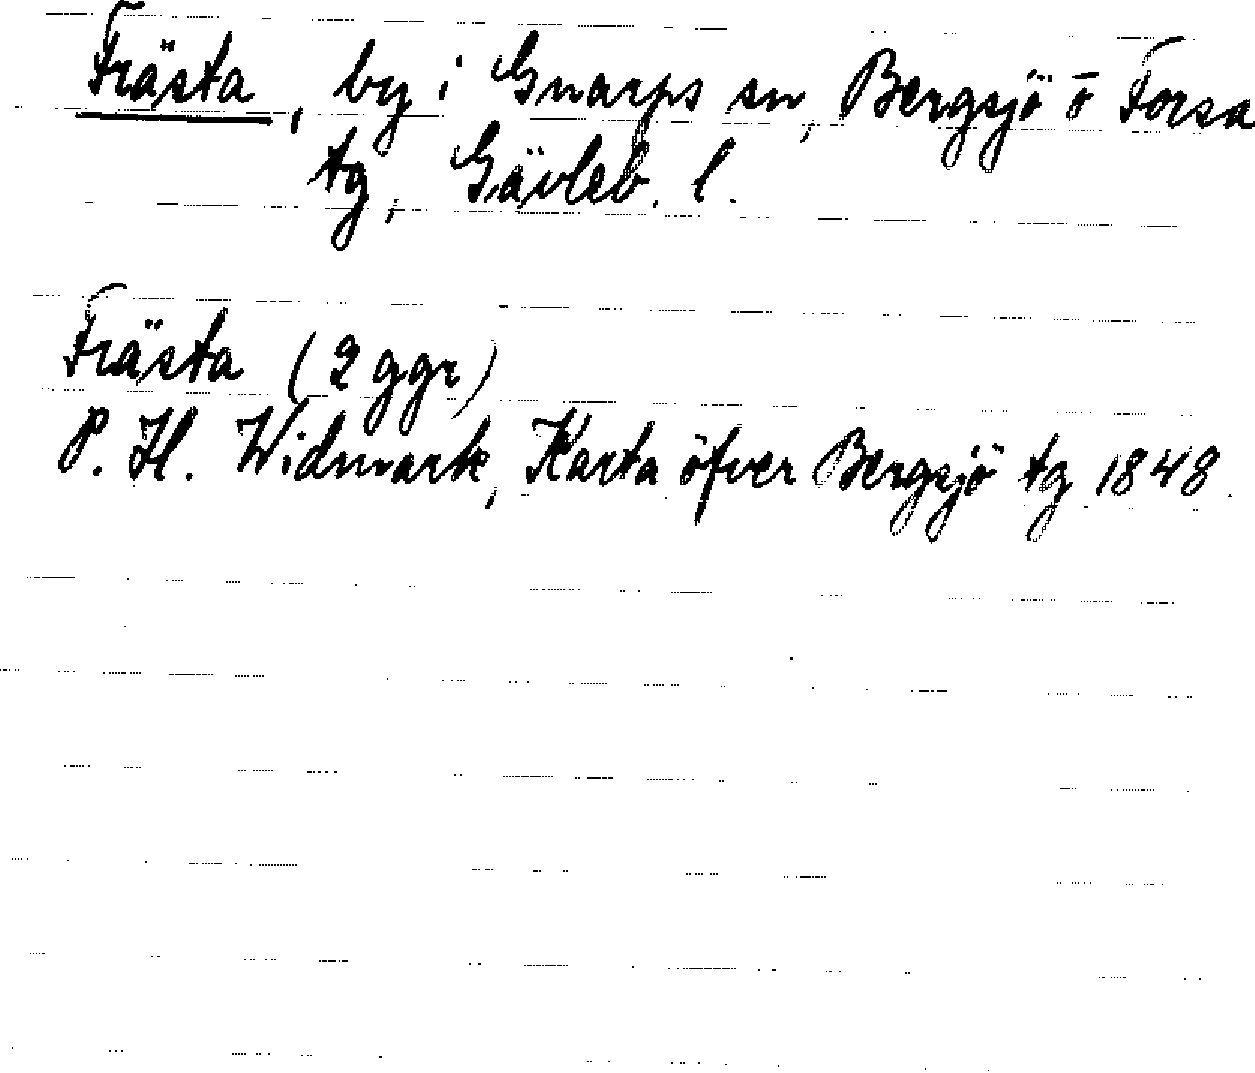 Frästa, by i Gnarps sn, Bergsjö o Forsa
tg, Gävleb. l.
Frästa (2 ggr)
P. H. Widmark, Karta öfver Bergsjö tg 1848.